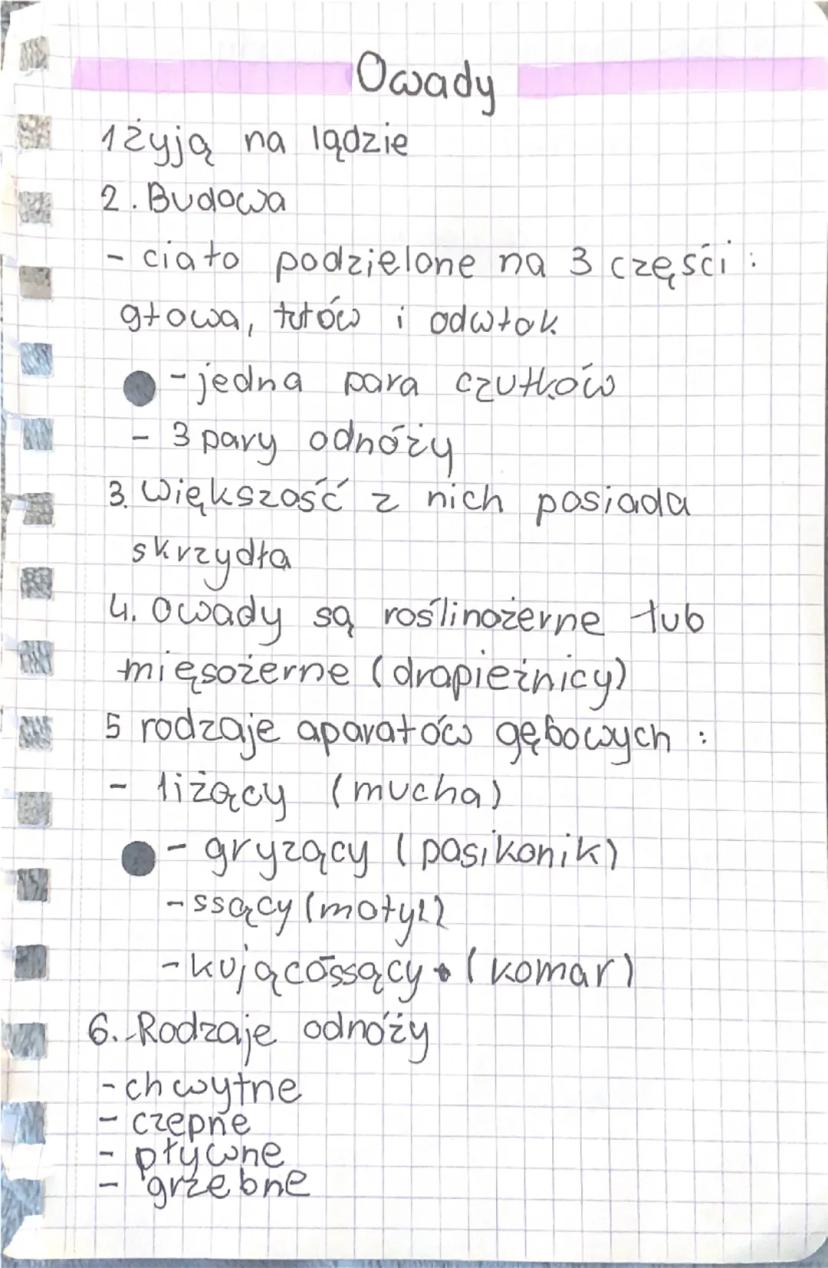 Owady
1 żyją na lądzie
2. Budowa
- ciało podzielone na 3 części:
głowa, tułów i odwłok
- jedna para czułków
- 3 pary odnóży
3. większość z nich posiada
skrzydła
4. owady są roślinożerne lub
mięsożerne (drapieżnicy)
5 rodzaje aparatów gębowych:
- liżący (mucha)
- gryzący (pasikonik)
- ssący (motyl)
- kującossący (komar)
6. Rodzaje odnóży
- chwytne
- czepne
- pływne
- grzebne